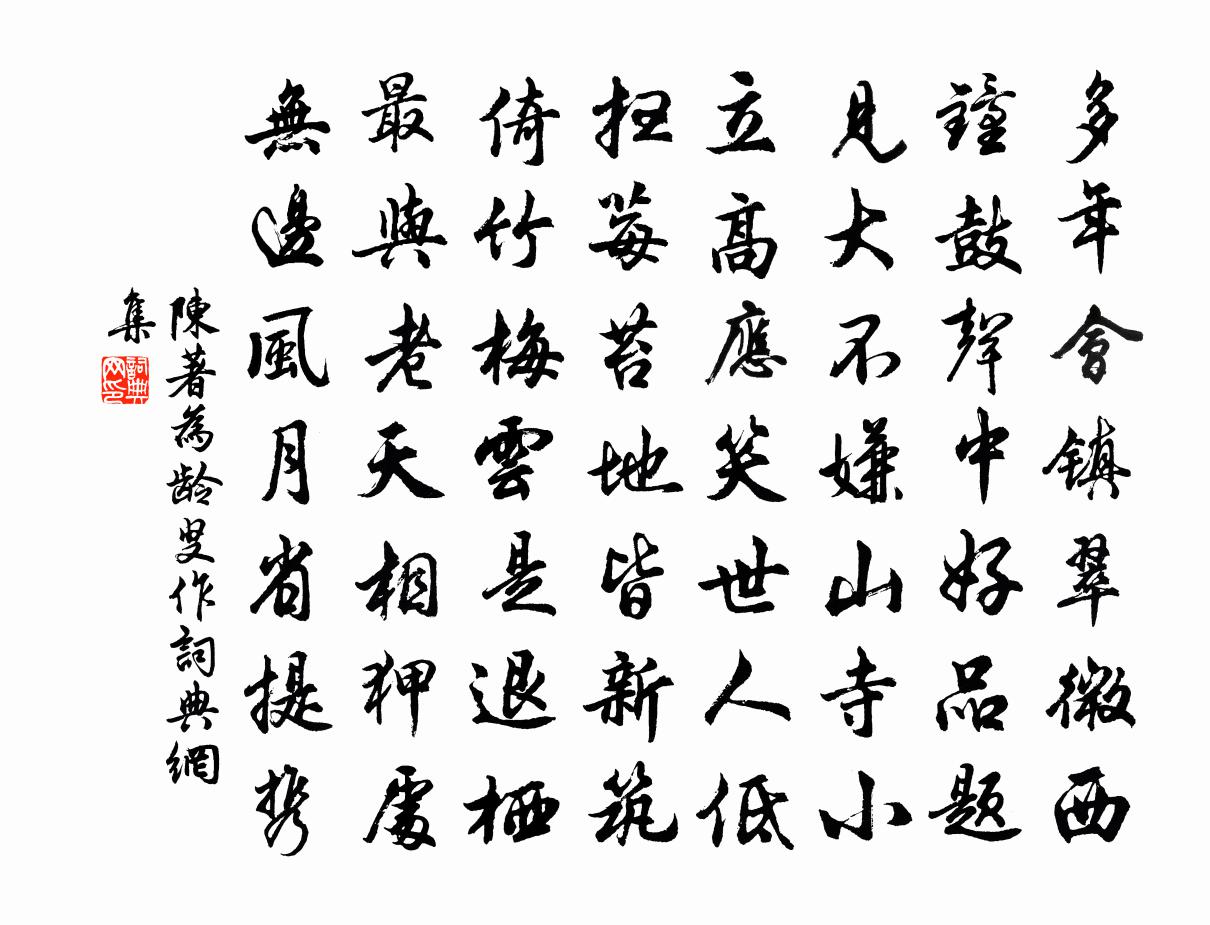 多年會鎮翠微西
鐘鼓聲中好品題
見大不嫌山寺小
立高應笑世人低
掃莓苔地皆新筑
倚竹梅雲是退栖
最與老天相狎處
無邊風月省提携
陳著為龄叟作詞典網
集
詞典网印